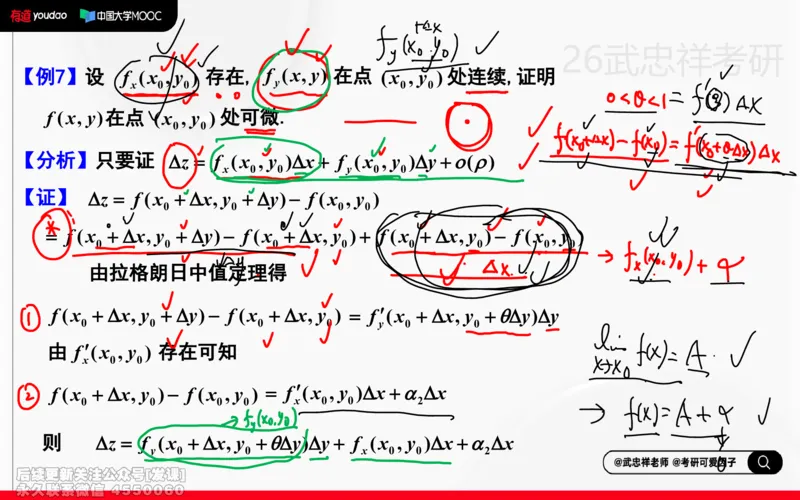 有道 youdao 中国大学MOOC
26武忠祥考研
f_y(x_0+Δx, y_0)
【例7】设 f_x(x_0,y_0) 存在, f_y(x,y) 在点 (x_0,y_0) 处连续, 证明
f(x,y)在点 (x_0,y_0) 处可微.
0<θ<1 = f'(ξ)Δx
f(x_0+Δx)-f(x_0) = f'(x_0+θΔx)Δx
【分析】只要证 Δz = f_x(x_0,y_0)Δx + f_y(x_0,y_0)Δy + o(ρ)
【证】 Δz = f(x_0+Δx, y_0+Δy) - f(x_0,y_0)
* = f(x_0+Δx, y_0+Δy) - f(x_0+Δx, y_0) + f(x_0+Δx, y_0) - f(x_0,y_0)
Δx → f_x(x_0,y_0) + α
由拉格朗日中值定理得
① f(x_0+Δx, y_0+Δy) - f(x_0+Δx, y_0) = f'_y(x_0+Δx, y_0+θΔy)Δy
由 f'_x(x_0,y_0) 存在可知
lim x→x_0 f(x) = A.
② f(x_0+Δx, y_0) - f(x_0,y_0) = f'_x(x_0,y_0)Δx + α_2Δx
→ f(x) = A + α
0
→ f_y(x_0,y_0)
则 Δz = f_y(x_0+Δx, y_0+θΔy)Δy + f_x(x_0,y_0)Δx + α_2Δx
@武忠祥老师 @考研可爱因子
后续更新关注公众号[发课]
永久联系微信 4550060